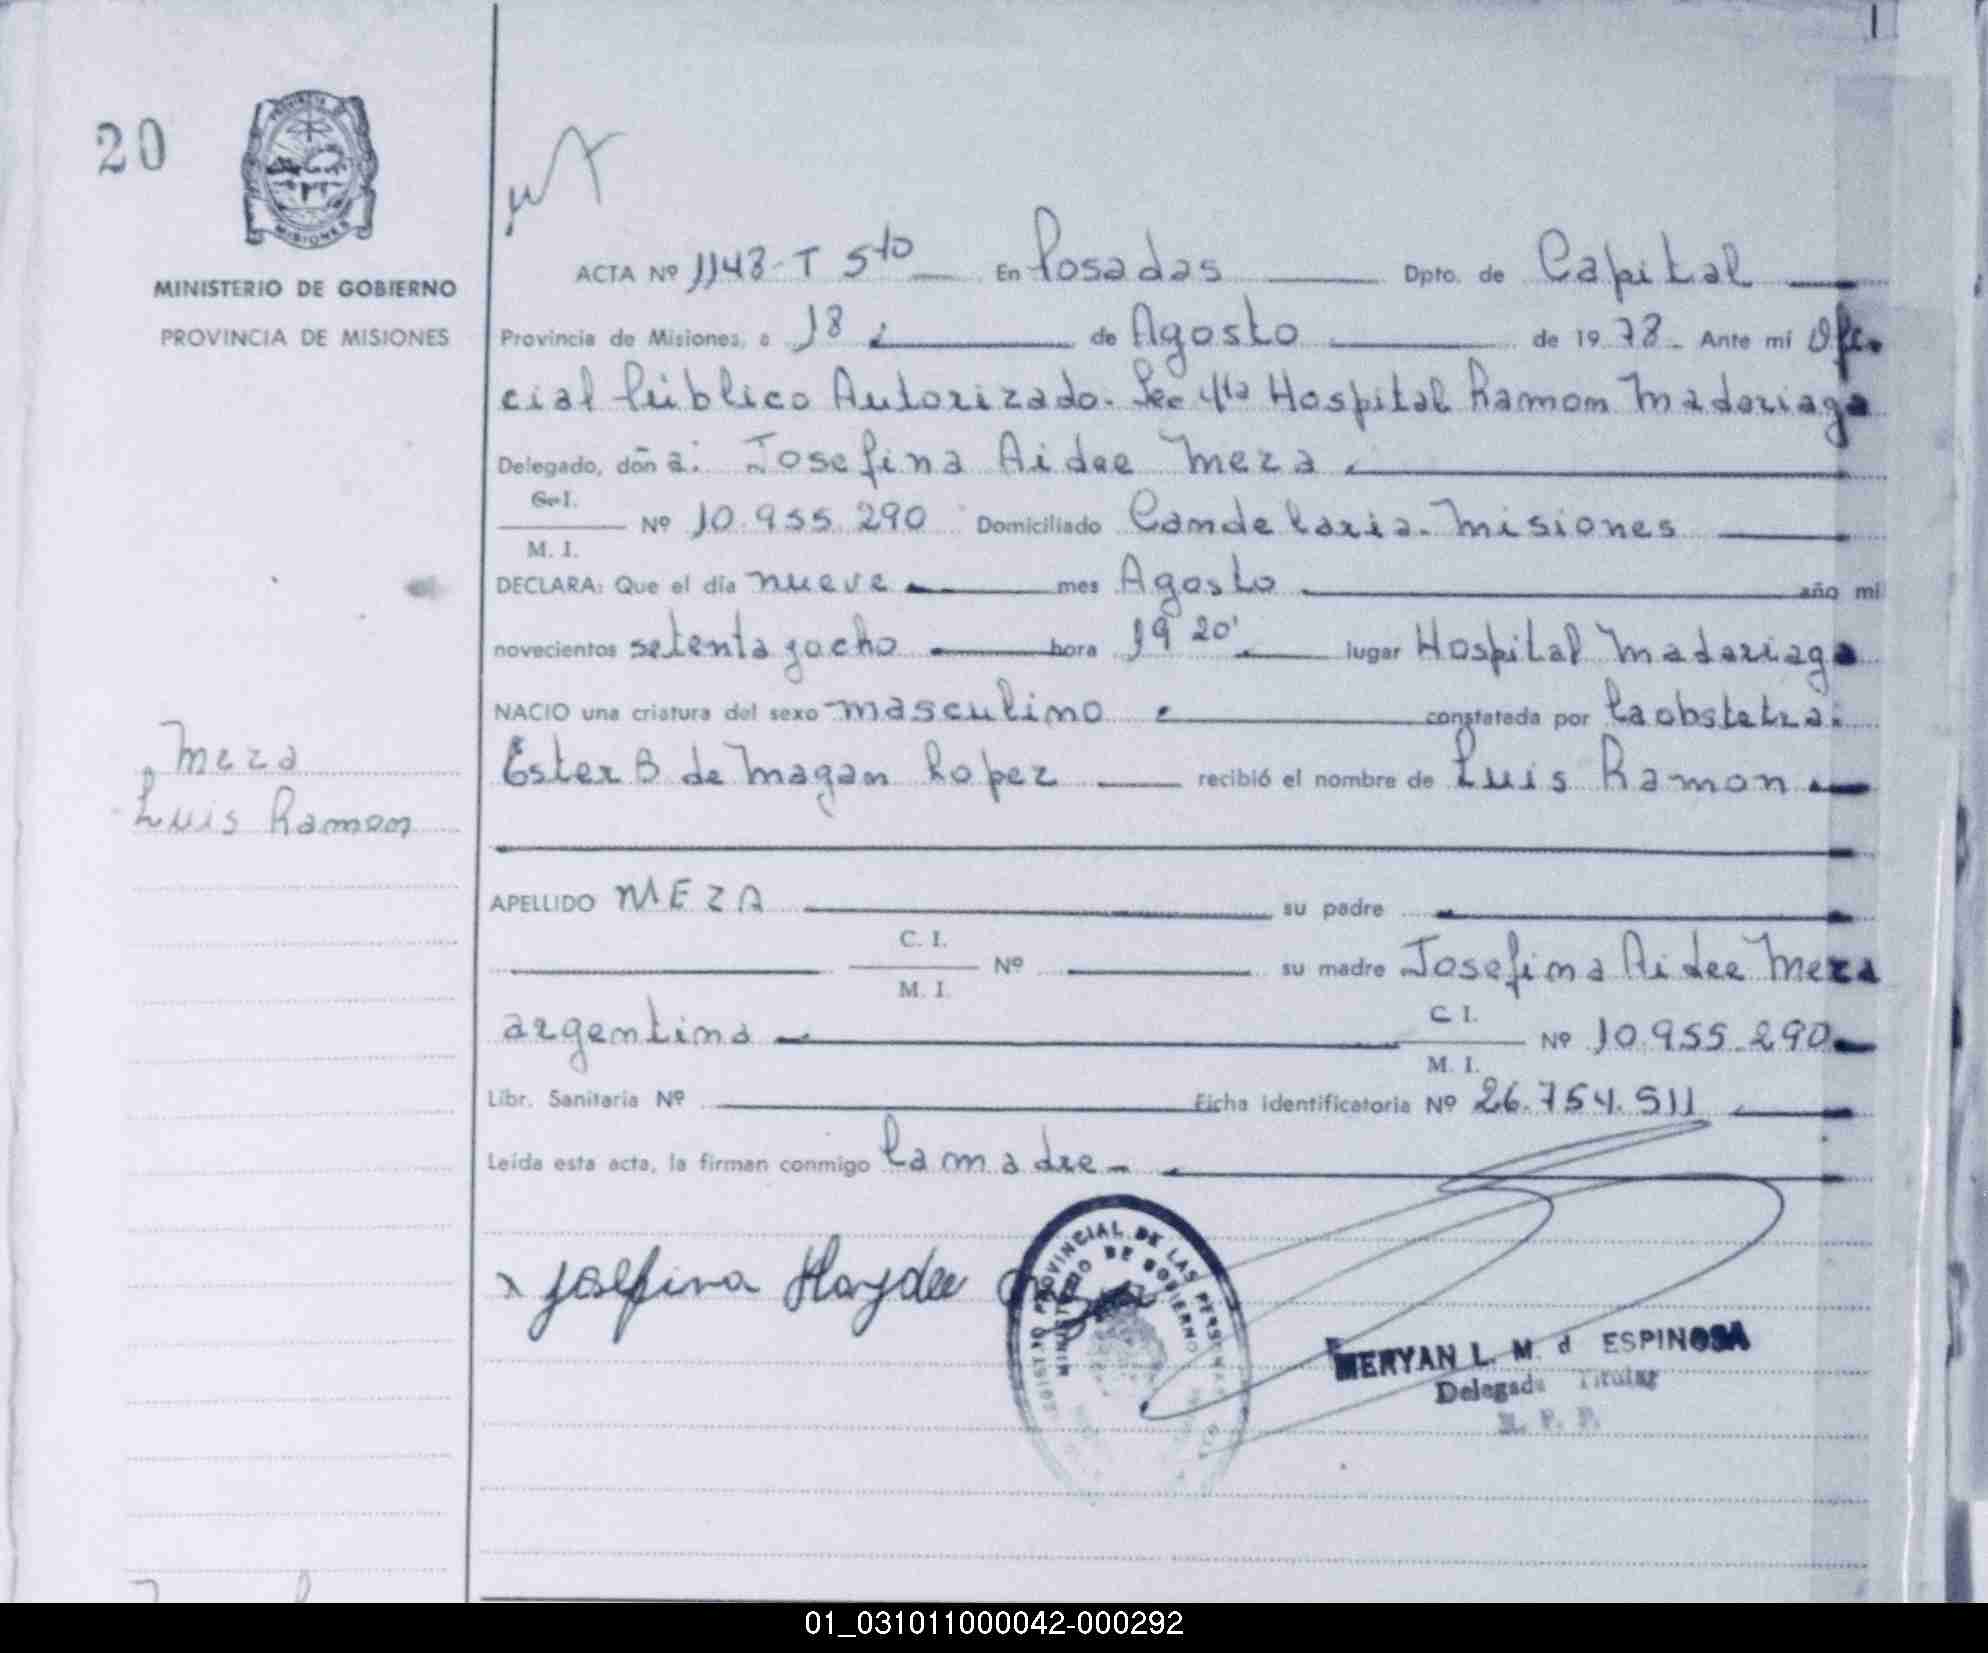 20
MINISTERIO DE GOBIERNO
PROVINCIA DE MISIONES
ACTA Nº 1148-T 5to En Posadas Dpto. de Capital
Provincia de Misiones, a 18 de Agosto de 1978. Ante mí Ofi-
cial Público Autorizado. Sec 4ta Hospital Ramon Madariaga
Delegado, doña: Josefina Aidee Meza
C. I.
M. I. Nº 10.955.290 Domiciliado Candelaria. Misiones
DECLARA: Que el día nueve mes Agosto año mil
novecientos setenta y ocho hora 19 20' lugar Hospital Madariaga
NACIO una criatura del sexo masculino constatada por la obstetra:
Ester B de Magan Lopez recibió el nombre de Luis Ramon
Meza
Luis Ramon
APELLIDO MEZA su padre
C. I.
M. I. Nº su madre Josefina Aidee Meza
argentina C. I.
M. I. Nº 10.955.290
Libr. Sanitaria Nº Ficha identificatoria Nº 26.754.511
Leída esta acta, la firman conmigo la madre
x Josefina Haydee
PROVINCIAL DE LAS PERSONAS
MINISTERIO DE GOBIERNO
MERYAN L. M. d ESPINOSA
Delegada Titular
R. P. P.
01_031011000042-000292